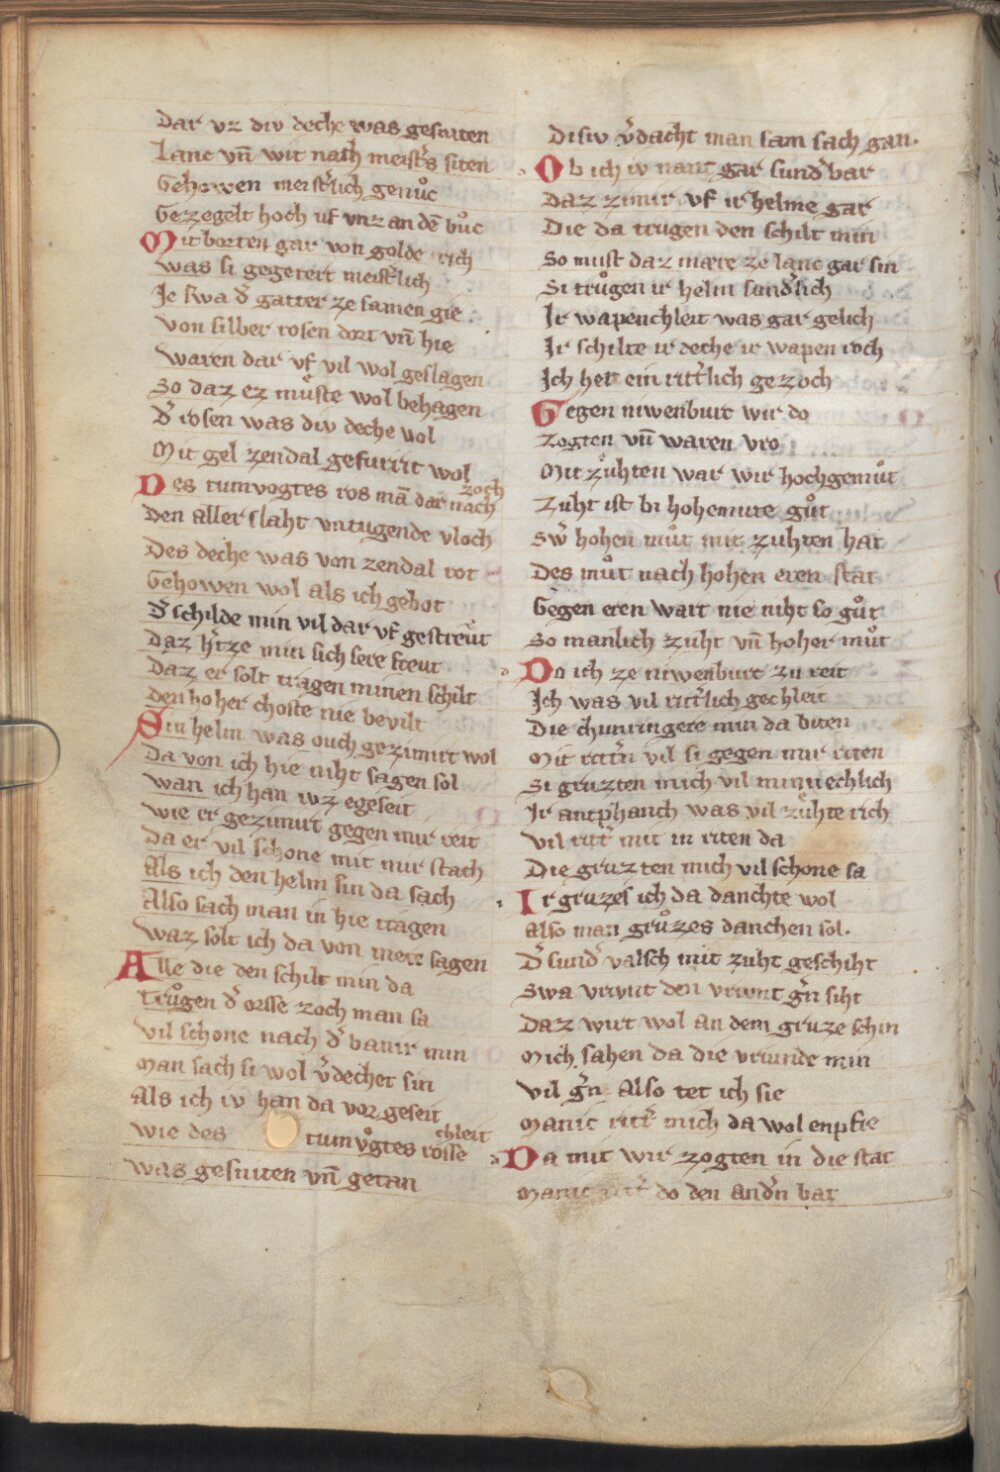 Dar vz div deche was gesniten
Lanc vn̄ wit nach meist͛s siten
Gehowen meist͛lich genůc
Gezegelt hoch uf vnz an dē bůc
Mit borten gar von golde rich
was si gegetert meist͛lich
Je swa d͛ gatter ze samen gie
von silber rosen dort vn̄ hie
waren dar vf vil wol geslagen
So daz ez můste wol behagen
D͛ rosen was div deche vol
Mit gel zendal gefurrit wol
Des tumvogtes ros mā dar nach zoch
Den aller slaht vntugende vloch
Des deche was von zendal rot
Gehowen wol als ich gebot
D͛ schilde min vil dar vf gestreut
Daz h͛tze min sich sere freut
Daz er solt tragen minen schilt
den hoher choste nie bevilt
Sin helm was ouch gezimirt wol
Da von ich hie niht sagen sol
wan ich han ivz egeseit
wie er gezimirt gegen mir reit
Da er vil schone mit mir stach
Als ich den helm sin da sach
Also sach man in hie tragen
waz solt ich da von mere sagen
Alle die den schilt min da
trůgen d͛ orsse zoch man sa
vil schone nach d͛ banir min
man sach si wol v͛dechet sin
Als ich iv han da vor geseit
wie des tumvogtes rosse chleit
was gesniten vn̄ getan
Disiv v͛dacht man sam sach gan.
Ob ich iv nant gar sund͛bar
Daz zimir vf ir helme gar
Die da trugen den schilt min
So must daz mære ze lanc gar sin
Si trůgen ir helm sund͛lich
Ir wapenchleit was gar gelich
Ir schilte ir deche ir wapen roch
Ich het ein ritt͛lich gezoch
Gegen niwenburc wir do
zogten vn̄ waren vro
Mit zuhten war wir hochgemůt
Zuht ist bi hohemute gůt
Sw͛ hohen můt mit zuhten hat
Des můt nach hohen eren stat
Gegen eren wart nie niht so gůt
So manlich zuht vn̄ hoher můt
Do ich ze niwenburc zu reit
Ich was vil ritt͛lich gechleit
Die chunringere min da biten
Mit ritt͛n vil si gegen mir riten
Si gruzten mich vil minnechlich
Ir antphanch was vil zuhte rich
vil ritt͛ mit in riten da
Die gruzten mich vil schone sa
Ir gruzes ich da danchte wol
Also man grůzes danchen sol.
D͛ sund͛ valsch mit zuht geschiht
Swa vrivnt den vrivnt g͛n siht
Daz wirt wol an dem gruze schin
Mich sahen da die vriunde min
vil g͛n Also tet ich sie
Manic ritt͛ mich da wol enpfie
Da mit wir zogten in die stat
Manic ritt͛ do den and͛n bat